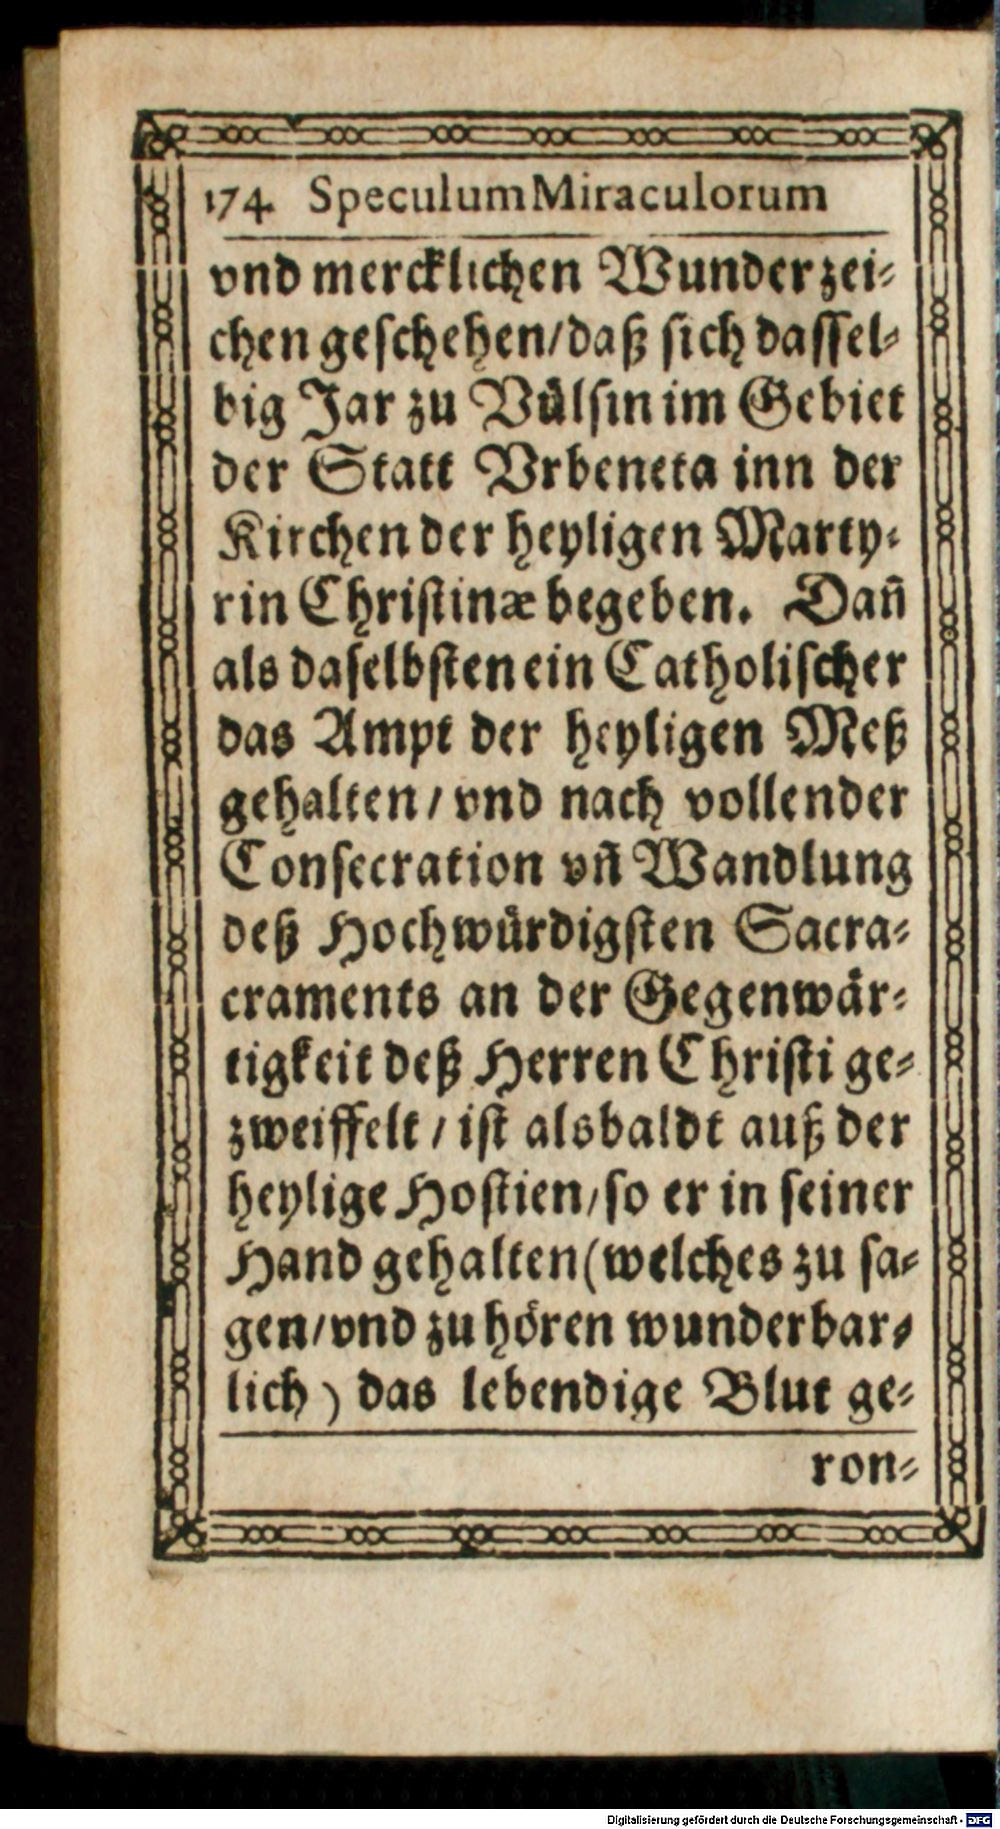 174 Speculum Miraculorum
vnd mercklichen Wunderzei⸗
chen geschehen/daß sich dassel⸗
big Jar zu Vülsin im Gebiet
der Statt Vrbeneta inn der
Kirchen der heyligen Marty⸗
rin Christinæ begeben. Dañ
als daselbsten ein Catholischer
das Ampt der heyligen Meß
gehalten/vnd nach vollender
Consecration vñ Wandlung
deß Hochwürdigsten Sacra⸗
craments an der Gegenwär⸗
tigkeit deß Herren Christi ge⸗
zweiffelt/ist alsbaldt auß der
heylige Hostien/so er in seiner
Hand gehalten(welches zu sa⸗
gen/vnd zu hören wunderbar⸗
lich) das lebendige Blut ge⸗
ron⸗
Digitalisierung gefördert durch die Deutsche Forschungsgemeinschaft - DFG